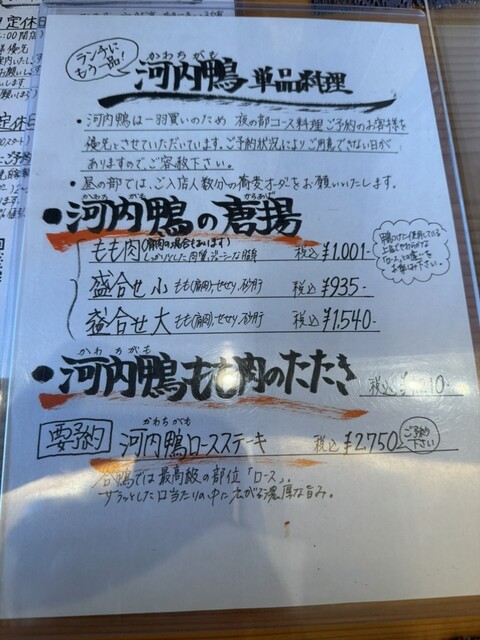 ランチに
もう一品!
かわちがも
河内鴨 単品料理
・河内鴨は一羽買いのため 夜の部コース料理ご予約のお客様を
優先とさせていただいています。ご予約状況によりご用意できない日が
ありますので、ご容赦下さい。
・昼の部では、ご入店人数分の蕎麦オーダーをお願いいたします。
かわちがも からあげ
・河内鴨の唐揚
もも肉(胸肉の場合もあります)
しっかりとした肉質、ジューシーな脂身
税込 ¥1,001-
盛合せ 小 もも(胸肉)、せせり、砂肝 税込 ¥935-
盛合せ 大 もも(胸肉)、せせり、砂肝 税込 ¥1,540-
かわちがも
・河内鴨もも肉のたたき 税込
要予約
かわちがも
河内鴨ロースステーキ 税込 ¥2,750
ご予約
下さい
合鴨では最高級の部位「ロース」。
サラッとした口当たりの中に広がる濃厚な旨み。